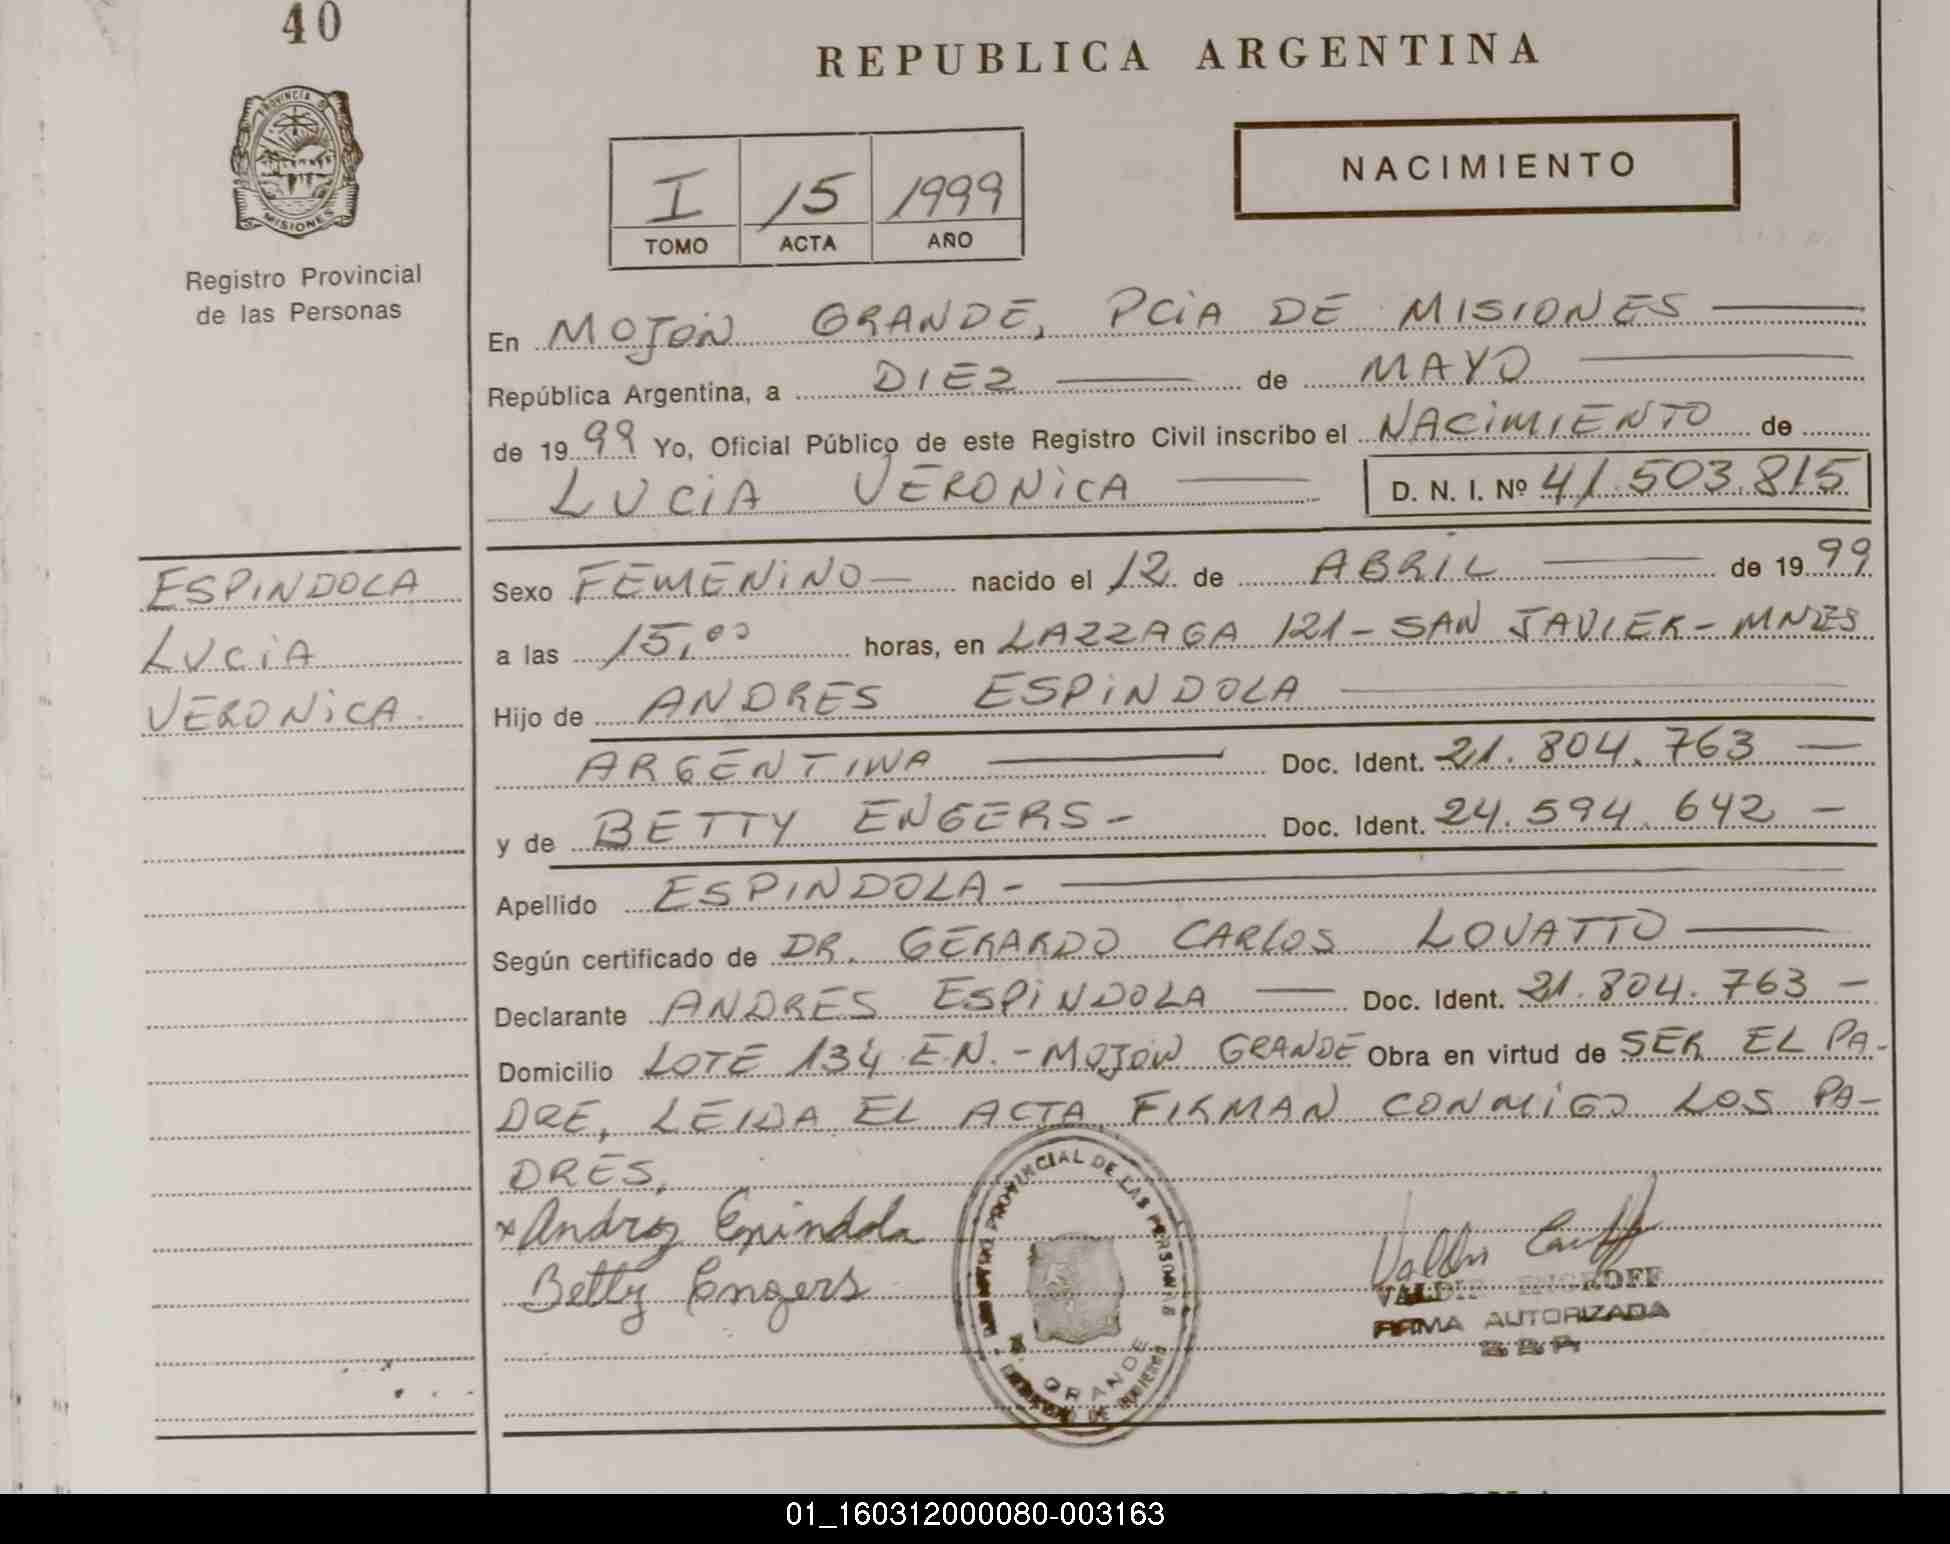 40
REPUBLICA ARGENTINA
PROVINCIA DE
MISIONES
NACIMIENTO
I 15 1999
TOMO ACTA AÑO
Registro Provincial
de las Personas
En MOJON GRANDE, PCIA DE MISIONES
República Argentina, a DIEZ de MAYO
de 1999 Yo, Oficial Público de este Registro Civil inscribo el NACIMIENTO de
LUCIA VERONICA D. N. I. Nº 41.503.815
ESPINDOLA
LUCIA
VERONICA.
Sexo FEMENINO nacido el 12 de ABRIL de 1999
a las 15,00 horas, en LAZZAGA 121 - SAN JAVIER - MNES
Hijo de ANDRES ESPINDOLA
ARGENTINA Doc. Ident. 21.804.763 -
y de BETTY ENGERS - Doc. Ident. 24.594.642 -
Apellido ESPINDOLA -
Según certificado de DR. GERARDO CARLOS LOVATTO
Declarante ANDRES ESPINDOLA Doc. Ident. 21.804.763 -
Domicilio LOTE 134 E.N. - MOJON GRANDE Obra en virtud de SER EL PA-
DRE, LEIDA EL ACTA FIRMAN CONMIGO LOS PA-
DRES,
x Andres Espindola
Betty Engers
PROVINCIAL DE LAS PERSONAS
GRANDE
FIRMA AUTORIZADA
01_160312000080-003163